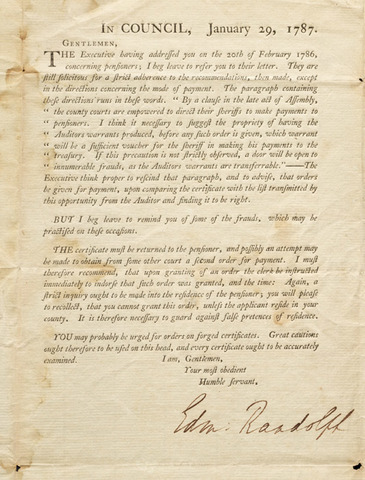 IN COUNCIL, January 29, 1787.
GENTLEMEN,
THE Executive having addressed you on the 20th of February 1786,
concerning pensioners; I beg leave to refer you to their letter. They are
still solicitous for a strict adherence to the recommendations, then made, except
in the directions concerning the mode of payment. The paragraph containing
these directions runs in these words. " By a clause in the late act of Assembly,
" the county courts are empowered to direct their sheriffs to make payments to
" pensioners. I think it necessary to suggest the propriety of having the
" Auditors warrants produced, before any such order is given, which warrant
" will be a sufficient voucher for the sheriff in making his payments to the
" treasury. If this precaution is not strictly observed, a door will be open to
" innumerable frauds, as the Auditors warrants are transferrable."——The
Executive think proper to rescind that paragraph, and to advise, that orders
be given for payment, upon comparing the certificate with the list transmitted by
this opportunity from the Auditor and finding it to be right.
BUT I beg leave to remind you of some of the frauds, which may be
practised on these occasions.
THE certificate must be returned to the pensioner, and possibly an attempt may
be made to obtain from some other court a second order for payment. I must
therefore recommend, that upon granting of an order the clerk be instructed
immediately to indorse that such order was granted, and the time: Again, a
strict inquiry ought to be made into the residence of the pensioner; you will please
to recollect, that you cannot grant this order, unless the applicant reside in your
county. It is therefore necessary to guard against false pretences of residence.
YOU may probably be urged for orders on forged certificates. Great cautions
ought therefore to be used on this head, and every certificate ought to be accurately
examined. I am, Gentlemen,
Your most obedient
Humble servant,
Edm: Randolph